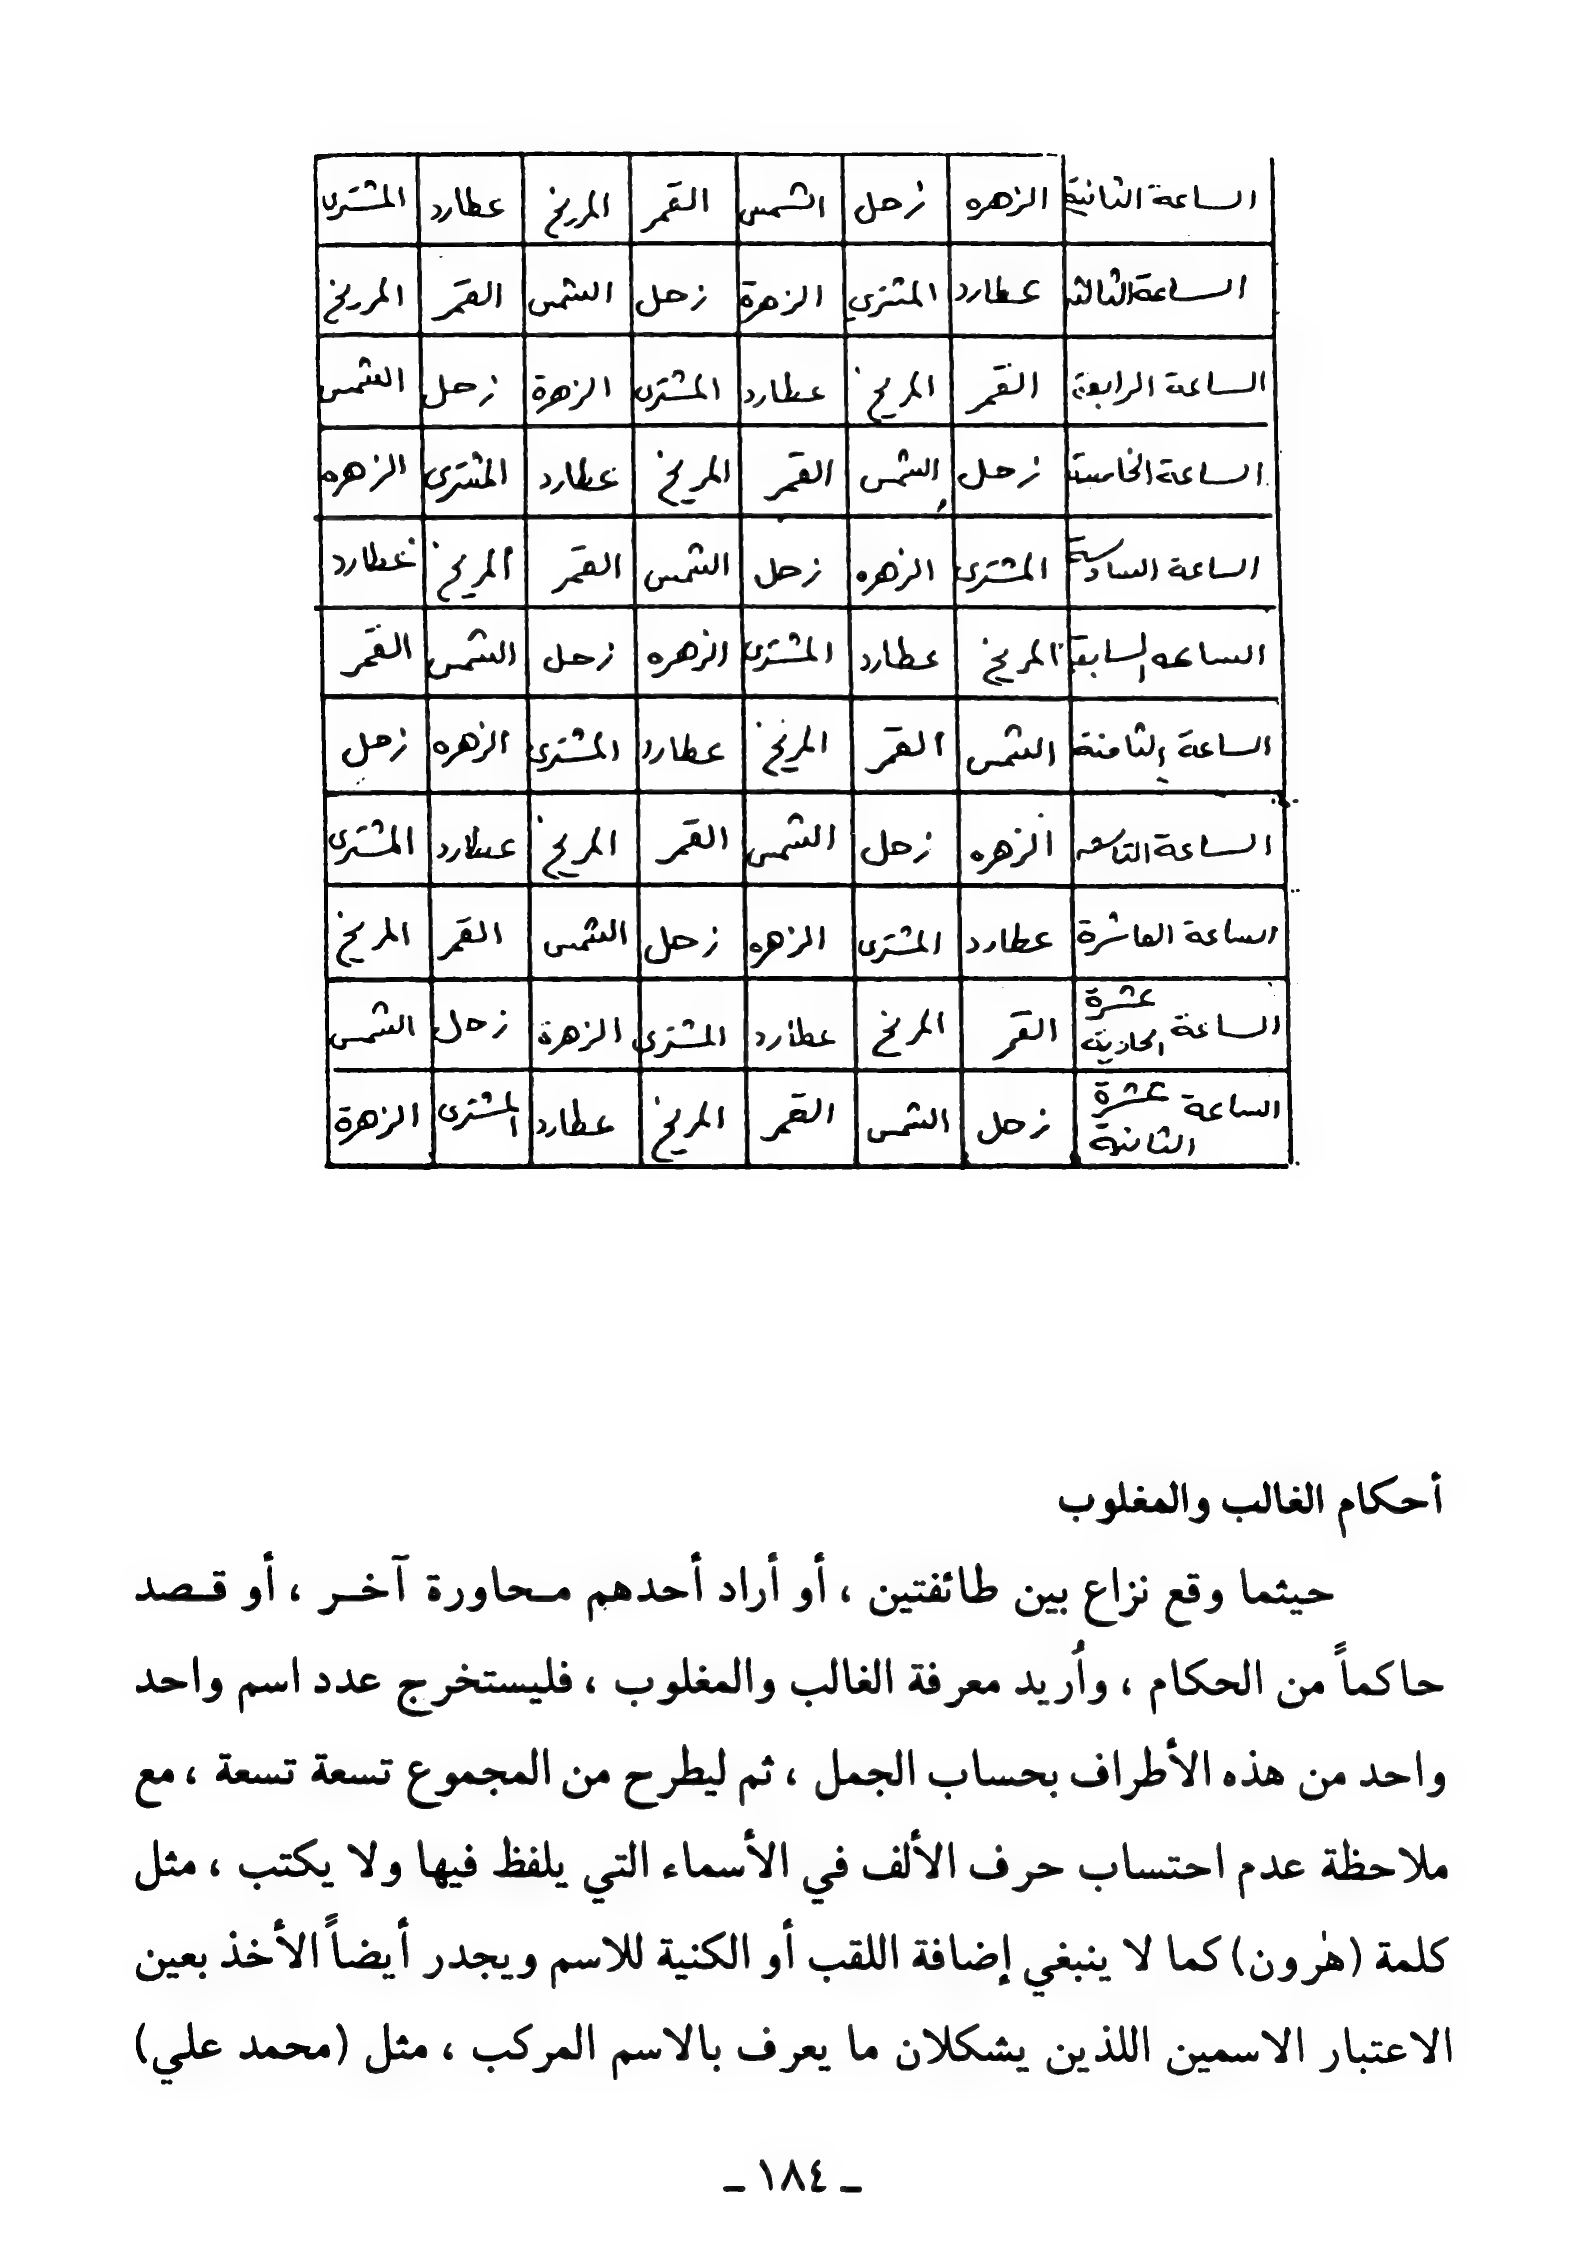 الساعة الثانية الزهره زحل الشمس القمر المريخ عطارد المشترى
الساعة الثالثة عطارد المشتري الزهرة زحل الشمس القمر المريخ
الساعة الرابعة القمر المريخ عطارد المشترى الزهرة زحل الشمس
الساعة الخامسة زحل الشمس القمر المريخ عطارد المشترى الزهره
الساعة السادسة المشترى الزهره زحل الشمس القمر المريخ عطارد
الساعه السابعة المريخ عطارد المشترى الزهره زحل الشمس القمر
الساعة الثامنة الشمس القمر المريخ عطارد المشترى الزهره زحل
الساعة التاسعه الزهره زحل الشمس القمر المريخ عطارد المشترى
الساعة العاشرة عطارد المشترى الزهره زحل الشمس القمر المريخ
الساعة الحادية عشرة القمر المريخ عطارد المشترى الزهرة زحل الشمس
الساعة الثانية عشرة زحل الشمس القمر المريخ عطارد المشترى الزهرة
أحكام الغالب والمغلوب
حيثما وقع نزاع بين طائفتين ، أو أراد أحدهم محاورة آخر ، أو قصد
حاكماً من الحكام ، وأُريد معرفة الغالب والمغلوب ، فليستخرج عدد اسم واحد
واحد من هذه الأطراف بحساب الجمل ، ثم ليطرح من المجموع تسعة تسعة ، مع
ملاحظة عدم احتساب حرف الألف في الأسماء التي يلفظ فيها ولا يكتب ، مثل
كلمة (هٰرون) كما لا ينبغي إضافة اللقب أو الكنية للاسم ويجدر أيضاً الأخذ بعين
الاعتبار الاسمين اللذين يشكلان ما يعرف بالاسم المركب ، مثل (محمد علي)
ـ ١٨٤ ـ